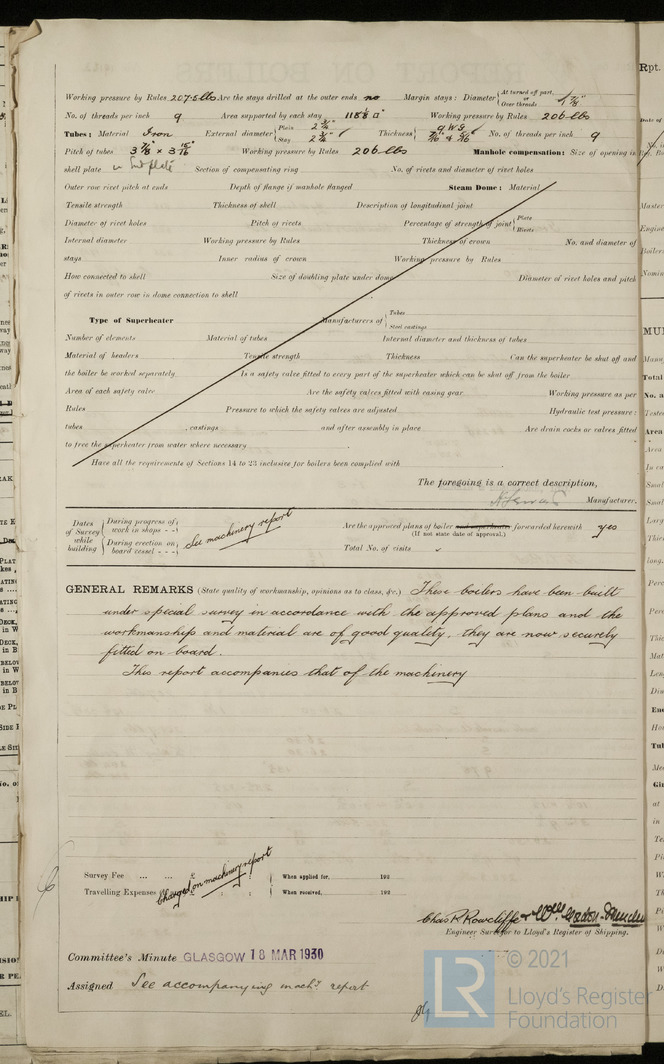 Working pressure by Rules 207.5 lbs Are the stays drilled at the outer ends no Margin stays: Diameter { At turned off part, or Over threads 1 7/8"
No. of threads per inch 9 Area supported by each stay 118 1/8 □" Working pressure by Rules 206 lbs
Tubes: Material Iron External diameter { Plain 2 3/4" Stay 2 3/4" ✓ Thickness { 9 W.G. ✓ No. of threads per inch 9
Pitch of tubes Working pressure by Rules 206 lbs Manhole compensation: Size of opening in
shell plate in End plate Section of compensating ring No. of rivets and diameter of rivet holes
Outer row rivet pitch at ends Depth of flange if manhole flanged Steam Dome: Material
Tensile strength Thickness of shell Description of longitudinal joint
Diameter of rivet holes Pitch of rivets Percentage of strength of joint { Plate Rivets
Internal diameter Working pressure by Rules Thickness of crown No. and diameter of
stays Inner radius of crown Working pressure by Rules
How connected to shell Size of doubling plate under dome Diameter of rivet holes and pitch
of rivets in outer row in dome connection to shell
Type of Superheater Manufacturers of { Tubes Steel castings
Number of elements Material of tubes Internal diameter and thickness of tubes
Material of headers Tensile strength Thickness Can the superheater be shut off and
the boiler be worked separately Is a safety valve fitted to every part of the superheater which can be shut off from the boiler
Area of each safety valve Are the safety valves fitted with easing gear Working pressure as per
Rules Pressure to which the safety valves are adjusted Hydraulic test pressure:
tubes , castings and after assembly in place Are drain cocks or valves fitted
to free the superheater from water where necessary
Have all the requirements of Sections 14 to 23 inclusive for boilers been complied with
The foregoing is a correct description,
Manufacturer.
Dates of Survey while building { During progress of work in shops - - During erection on board vessel - - - } See machinery report
Are the approved plans of boiler and superheater forwarded herewith yes
(If not state date of approval.)
Total No. of visits
GENERAL REMARKS (State quality of workmanship, opinions as to class, &c.) These boilers have been built
under special survey in accordance with the approved plans and the
workmanship and material are of good quality, they are now securely
fitted on board.
This report accompanies that of the machinery
Survey Fee ... ... £ : : When applied for, 192
Travelling Expenses £ : : When received, 192
Charged on machinery report
Chas R Rowcliffe &
Engineer Surveyor to Lloyd's Register of Shipping.
Committee's Minute GLASGOW 18 MAR 1930
Assigned See accompanying machy report
LR © 2021 Lloyd's Register Foundation